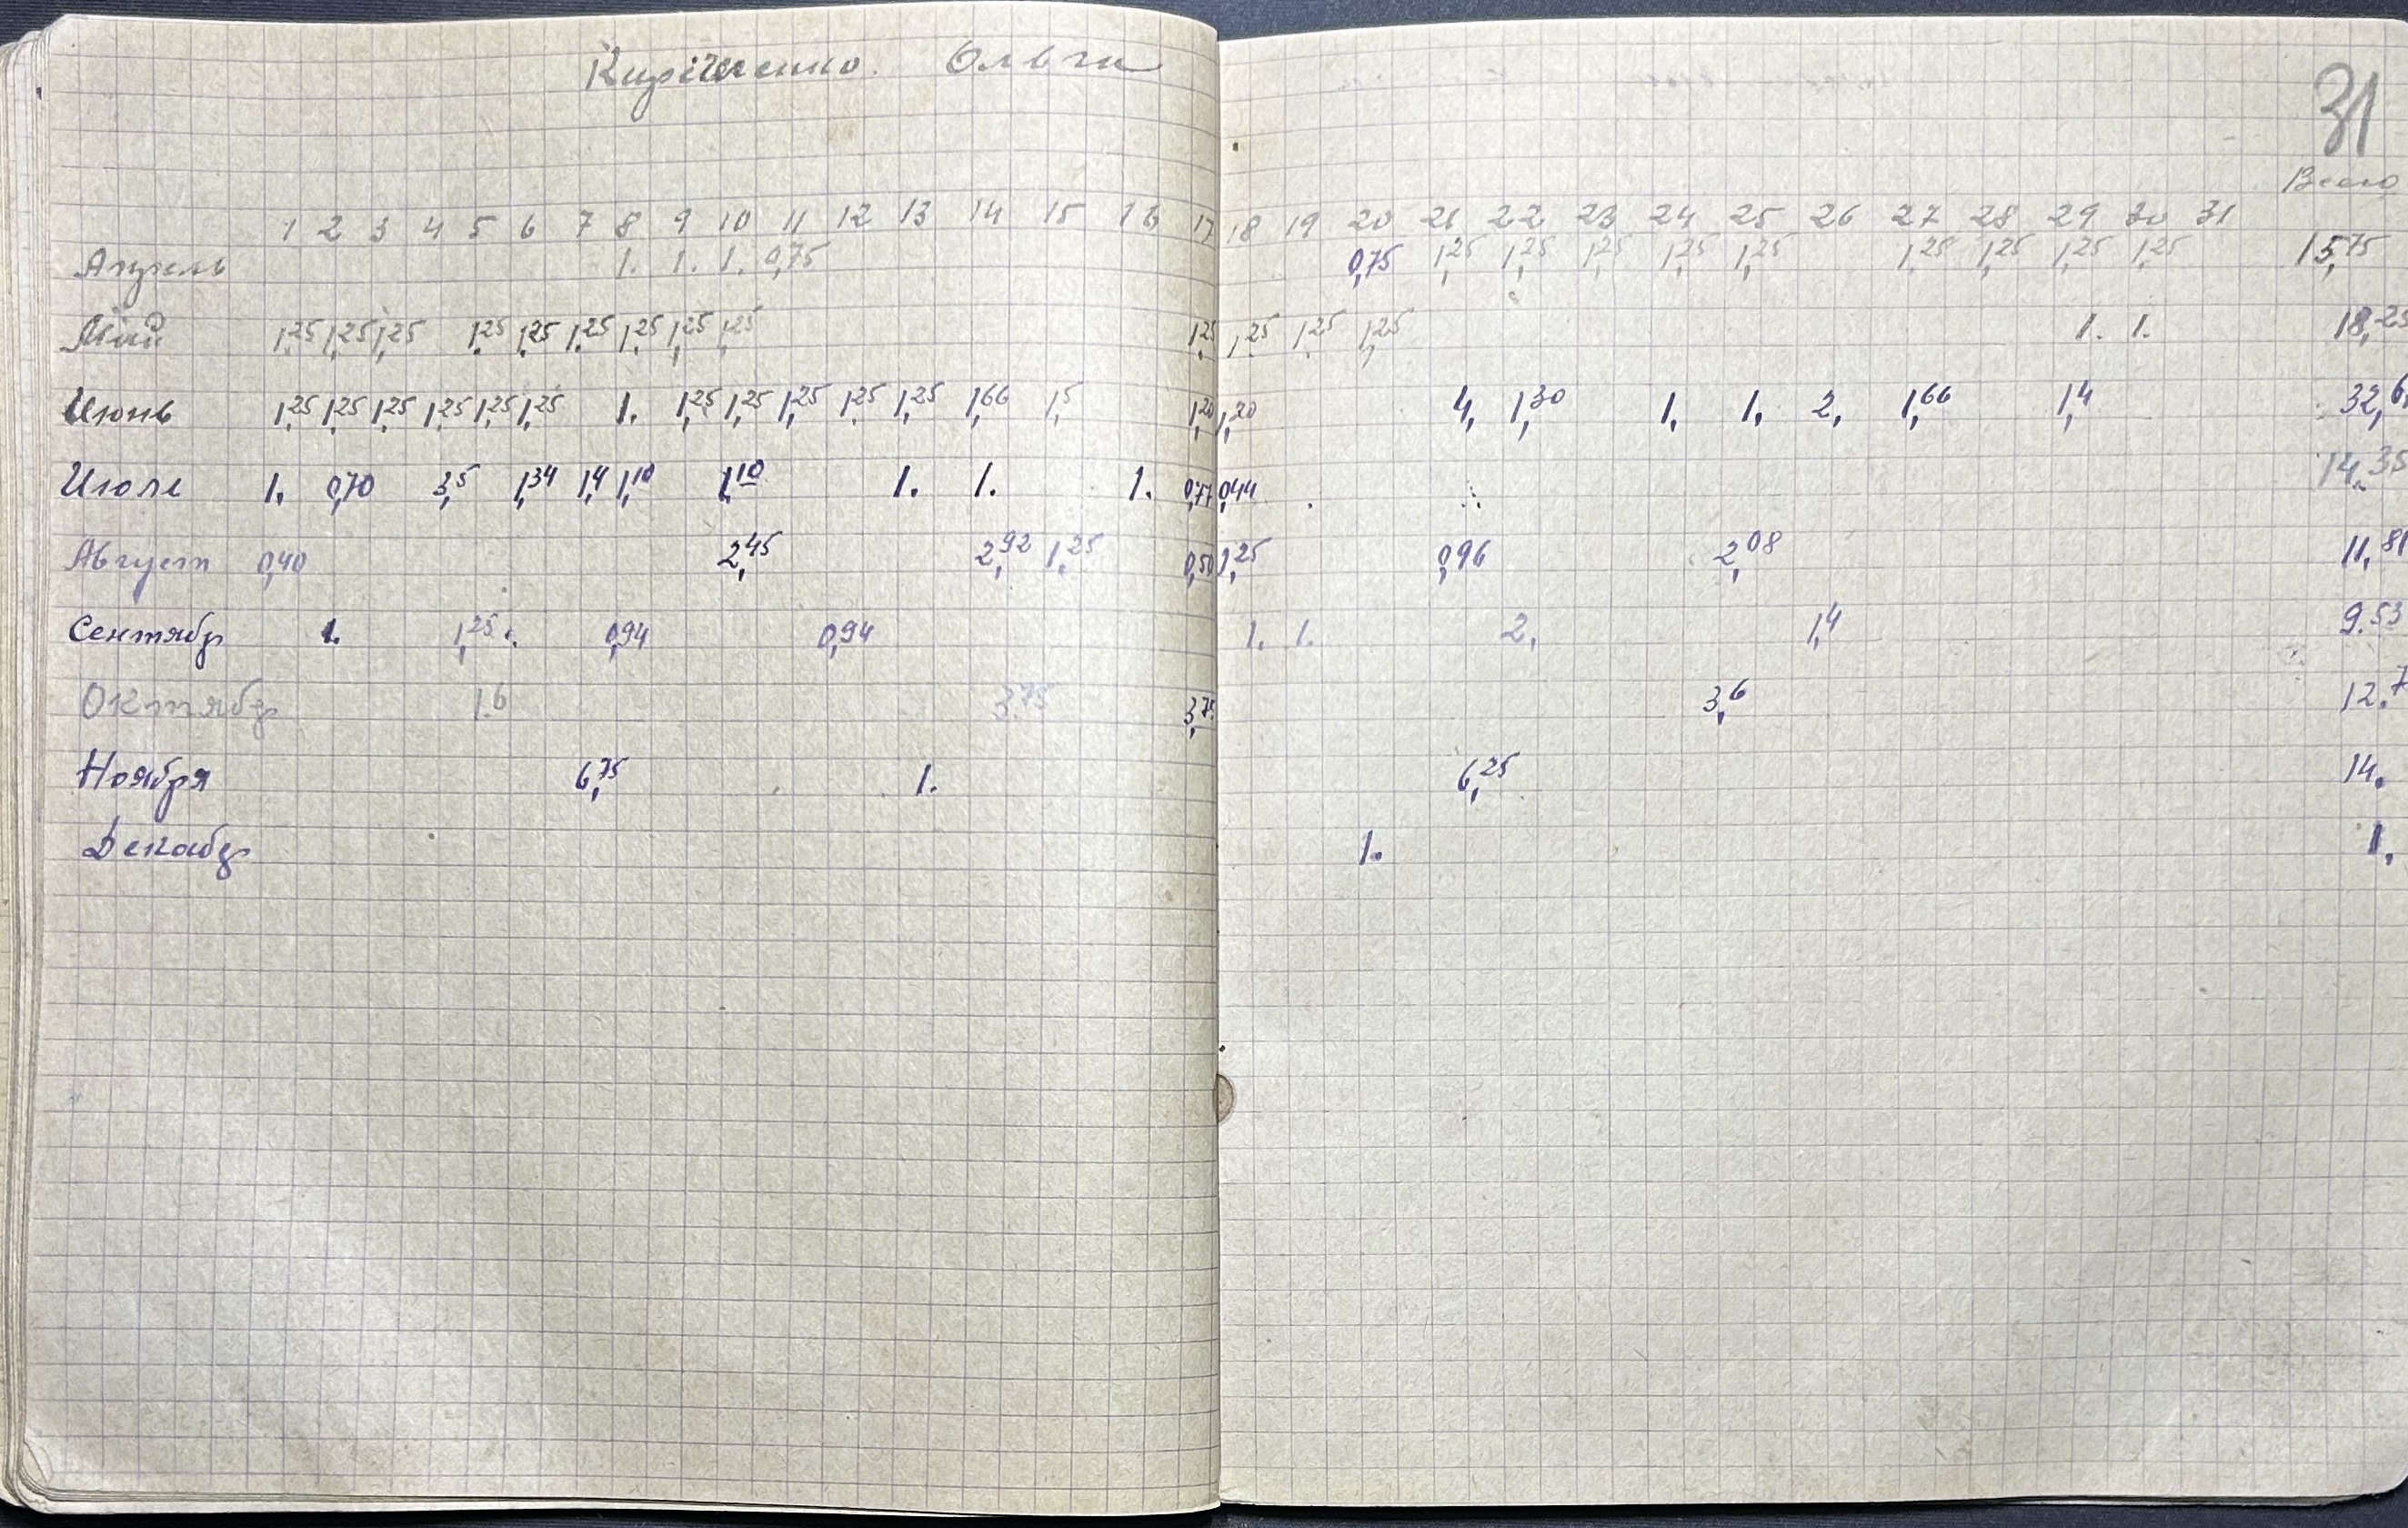 Кириченко. Ольги
31
Всего
1 2 3 4 5 6 7 8 9 10 11 12 13 14 15 16 17 18 19 20 21 22 23 24 25 26 27 28 29 30 31
Апрель 1. 1. 1. 0,75 0,75 1,25 1,25 1,25 1,25 1,25 1,25 1,25 1,25 1,25 15,75
Май 1,25 1,25 1,25 1,25 1,25 1,25 1,25 1,25 1,25 1,25 1,25 1,25 1,25 1. 1. 18,25
Июнь 1,25 1,25 1,25 1,25 1,25 1,25 1. 1,25 1,25 1,25 1,25 1,25 1,66 1,5 1,20 1,20 4, 1,30 1, 1, 2, 1,66 1,4 32,6
Июль 1. 0,70 3,5 1,34 1,4 1,10 1,10 1. 1. 1. 0,77 0,44 14,35
Август 0,40 2,45 2,92 1,25 0,50 1,25 0,96 2,08 11,81
Сентябр 1. 1,25. 0,94 0,94 1. 1. 2, 1,4 9.53
Октябр 1.6 3.75 3,75 3,6 12.7
Ноября 6,75 1. 6,25 14.
Декабр 1. 1,